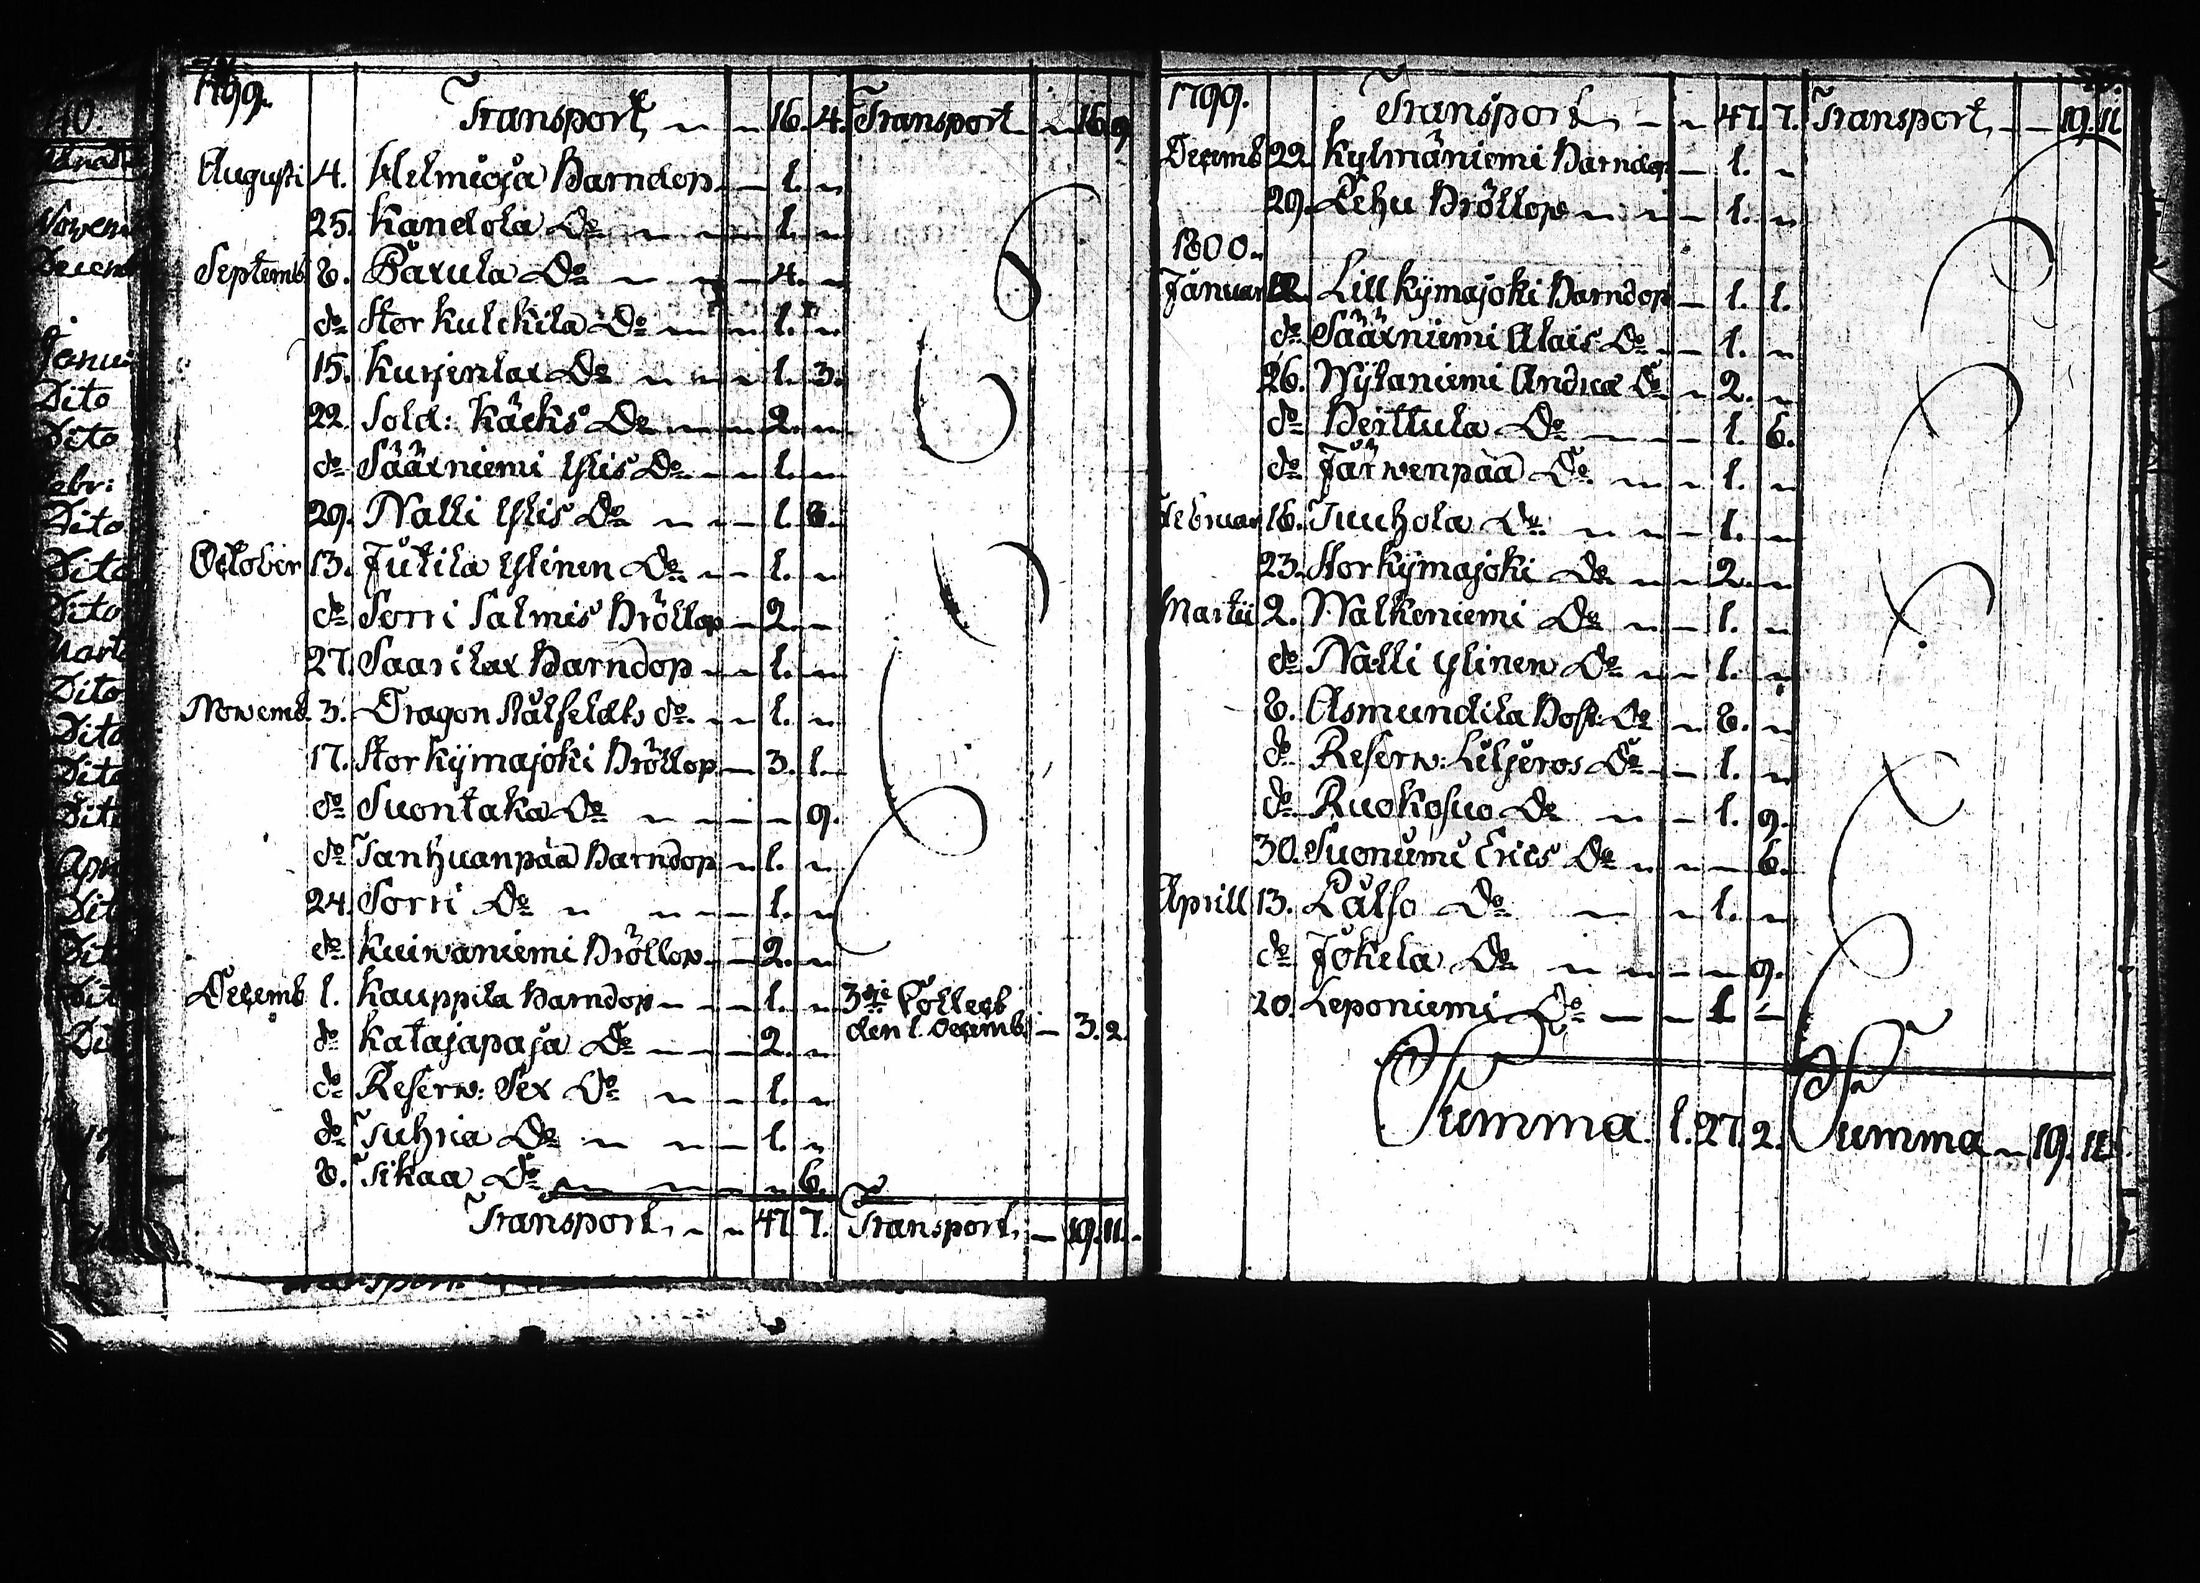 1799.
Transport 16. 4. Transport 16 9
Augusti 4. Helmioja Barndop 1.
25. Kandola Do 1.
Septemb 8. Parula Do 4.
do Stor Kulckila Do 1.
15. Kurjenlax Do 1. 3.
22. Sold: Käcks Do 2.
do Säärniemi Ylis Do 1.
29. Nalli Ylis Do 1. 8.
October 13. Jutila Ylinen Do 1.
do Sorri Salmis Bröllop 2.
27. Saarilax Barndop 1.
Novemb. 3. Dragon Stålfeldts do 1.
17. Stor Kÿmajoki Bröllop 3. 1.
do Suontaka Do 9.
do Tanhuanpää Barndop 1.
24. Sorri Do 1.
do Kuivaniemi Bröllop 2.
Decemb 1. Kauppila Barndop 1. 3die Collect
den 1. Decemb 3. 2.
do Katajapaja Do 2.
do Reserv: Sex Do 1.
do Tuhria Do 1.
8. Tikaa Do 6.
Transport 47 7. Transport 19. 11.
1799. Transport 47. 7. Transport 19. 11
Decemb 22. Kylmäniemi Barndop 1.
29. Lehu Bröllop 1.
1800.
Januar 12. Lill Kÿmajoki Barndop 1. 1.
do Säärniemi Alais Do 1.
26. Wÿlaniemi Andrea Do 2.
do Perttula Do 1. 6.
do Järwenpää Do 1.
Februar 16. Tuuhola Do 1.
23. Stor Kÿmajoki Do 2.
Martii 2. Walkeniemi Do 1.
do Nalli Ylinen Do 1.
8. Asmundila Host: Do 8.
do Reserv: Liljeros Do 1.
do Ruokosuo Do 1. 9.
30. Suonumi Erics Do 6.
Aprill 13. Pålso Do 1.
do Jokela Do 9.
20. Leponiemi Do 1
Summa 1. 27. 2. Summa 19. 11.